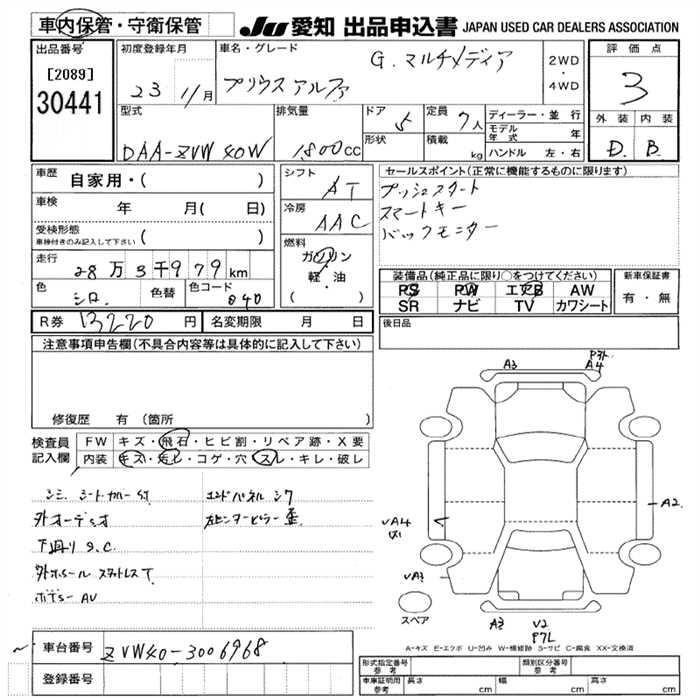 車内保管・守衛保管
JU 愛知 出品申込書 JAPAN USED CAR DEALERS ASSOCIATION
出品番号
[2089]
30441
初度登録年月
23 11月
車名・グレード
G. マルチメディア
プリウスアルファ
2WD
・
4WD
評価点
3
外装 内装
D. B.
型式
DAA-ZVW40W
排気量
1800cc
ドア
5
形状
定員
7人
積載
kg
ディーラー・並行
モデル年式 年
ハンドル 左・右
車歴
自家用・( )
車検
年 月( 日)
受検形態
車検付きのみ記入して下さい ( )
走行
28万3千979km
色
シロ
色替
色コード
040
シフト
AT
冷房
AAC
燃料
ガソリン
軽・油
( )
セールスポイント(正常に機能するものに限ります)
プッシュスタート
スマートキー
バックモニター
装備品(純正品に限り○をつけてください)
PS PW エアB AW
SR ナビ TV カワシート
新車保証書
有・無
R券 13220円
名変期限 月 日
後日品
注意事項申告欄(不具合内容等は具体的に記入して下さい)
修復歴 有(箇所
検査員
記入欄
FW キズ・飛石・ヒビ割・リペア跡・X要
内装 キズ・汚レ・コゲ・穴・スレ・キレ・破レ
シミ シートカバー付
外オーデオ
下廻りS.C.
外ホイール スタットレスT
ボデーAV
エンドパネルシワ
左センターピラー歪
A3
A4
A2
VA4
VA3
スペア
A3
V2
P7L
A-キズ E-エクボ U-凹み W-補修跡 S-サビ C-腐食 XX-交換済
車台番号
ZVW40-3006968
登録番号
形式指定番号
参考
類別区分番号
参考
車庫証明用
参考
長さ cm
幅 cm
高さ cm